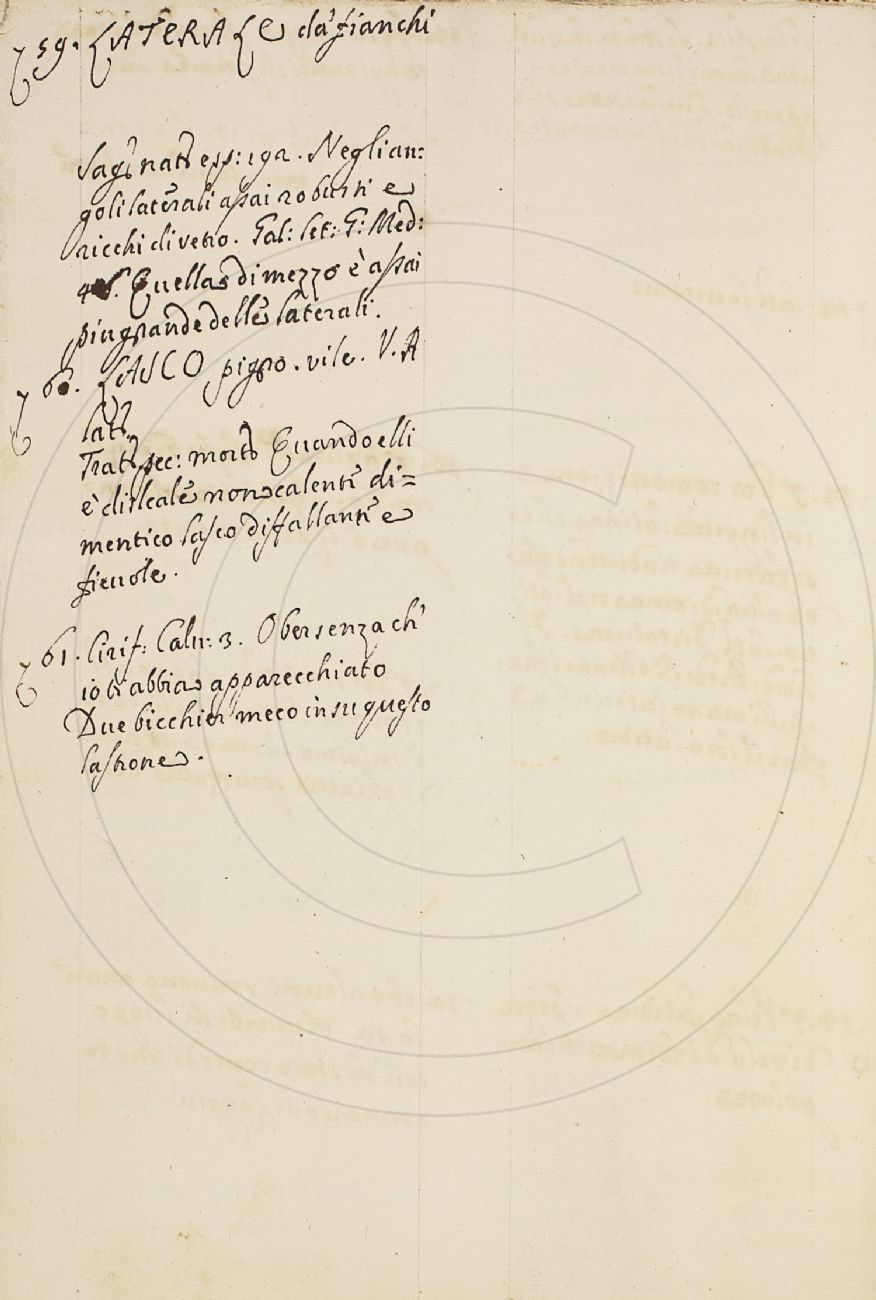 59. LATERALE da' fianchi
Sagg: nat: esp: 192. Negli an:
goli laterali assai robusti e
ricchi di vetro. Gal: let: G: Med:
Quella di mezzo è assai
piu grande delle laterali.
60. LASCO pigro. vile. V. A
lat:
Tratt: pec: mort: Quando elli
è disleale non calente di=
mentico lasco diffallante e
fievole.
61. Cirif: Calu: 3. Ober senza ch'
io ti abbia apparecchiato
Due bicchier meco in su questo
lastrone.